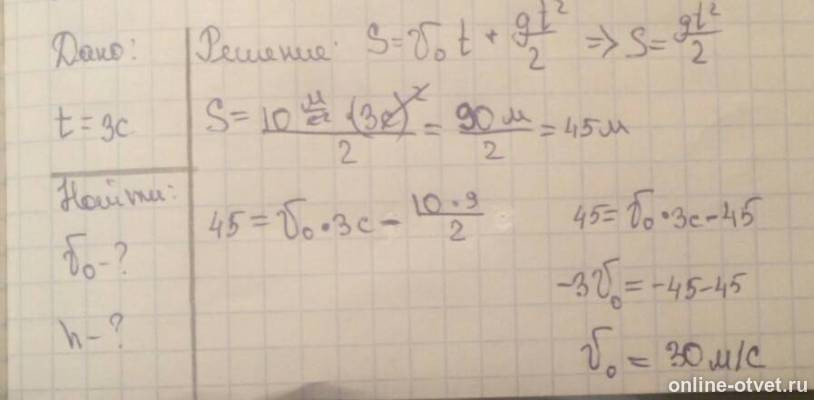 Дано:
t = 3с
Найти:
v₀ - ?
h - ?
Решение: S = v₀t + gt²/2 => S = gt²/2
S = 10 м/с² (3с)² / 2 = 90 м / 2 = 45 м
45 = v₀ · 3с - 10·9/2
45 = v₀ · 3с - 45
-3v₀ = -45-45
v₀ = 30 м/с
online-otvet.ru